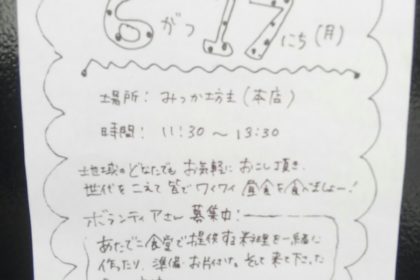 6がつ17にち(月)
場所: みっか坊主(本店)
時間: 11:30〜13:30
地域のどなたでもお気軽におこし頂き、
世代をこえて皆でワイワイ昼食を食べましょー!
ボランティアさん募集中!
あたでこ食堂で提供する料理を一緒に
作ったり、準備・お片付け、そして来て下さった